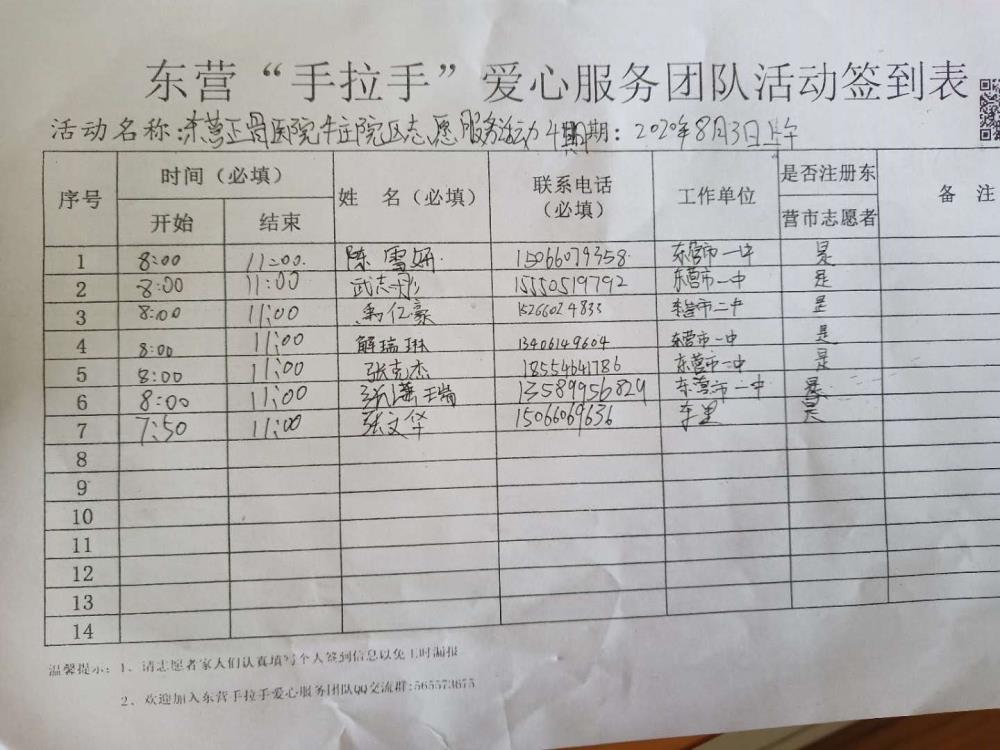 东营“手拉手”爱心服务团队活动签到表
活动名称：东营正骨医院牛庄院区志愿服务活动4期期：2020年8月3日上午
序号 时间（必填） 姓 名（必填） 联系电话（必填） 工作单位 是否注册东营市志愿者 备 注
开始 结束
1 8:00 11:00. 陈雪妍 15066079358 东营市一中 是
2 8:00 11:00 武志刚 15550519792 东营市一中 是
3 8:00 11:00 禹仁豪 15266024833 东营市二中 是
4 8:00 11:00 解瑞琳 13406149604 东营市一中 是
5 8:00 11:00 张克杰 18554641786 东营市一中 是
6 8:00 11:00 张潇瑞 13589956829 东营市一中 是
7 7:50 11:00 张文华 15066069636 是
8
9
10
11
12
13
14
温馨提示：1、请志愿者家人们认真填写个人签到信息以免工时漏报
2、欢迎加入东营手拉手爱心服务团队QQ交流群:565573675